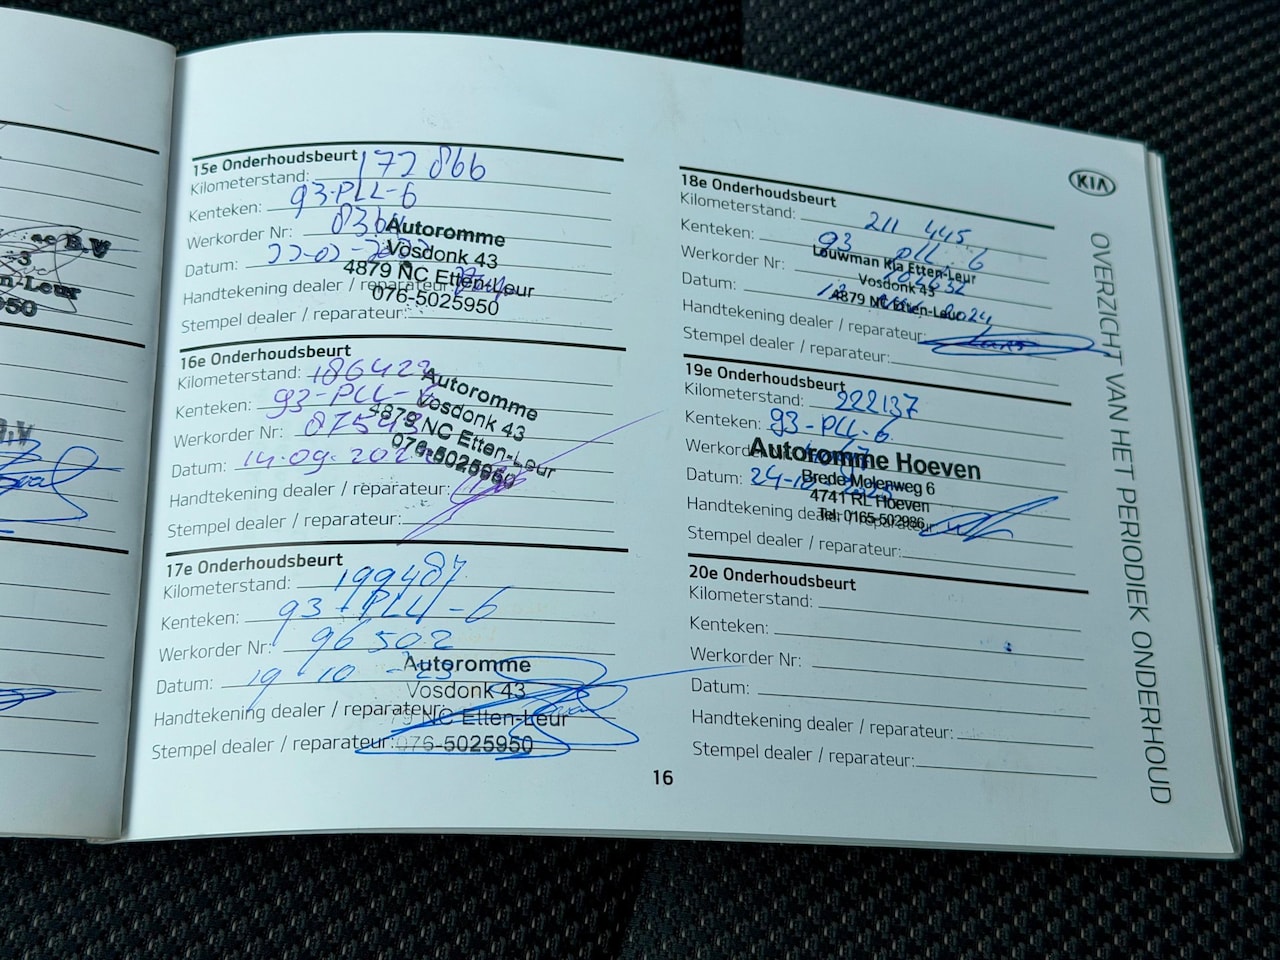 15e Onderhoudsbeurt
Kilometerstand: 172 866
Kenteken: 93-PLL-6
Werkorder Nr:
Datum:
Handtekening dealer / reparateur:
Stempel dealer / reparateur:
Autoromme
Vosdonk 43
4879 NC Etten-Leur
076-5025950
16e Onderhoudsbeurt
Kilometerstand:
Kenteken: 93-PLL-6
Werkorder Nr:
Datum: 14-09-202
Handtekening dealer / reparateur:
Stempel dealer / reparateur:
Autoromme
Vosdonk 43
4879 NC Etten-Leur
076-5025950
17e Onderhoudsbeurt
Kilometerstand: 199487
Kenteken: 93-PLL-6
Werkorder Nr: 96502
Datum: 19-10-23
Handtekening dealer / reparateur:
Stempel dealer / reparateur:
Autoromme
Vosdonk 43
79 NC Etten-Leur
076-5025950
18e Onderhoudsbeurt
Kilometerstand: 211 445
Kenteken: 93 PLL 6
Werkorder Nr:
Datum: 2024
Handtekening dealer / reparateur:
Stempel dealer / reparateur:
Louwman Kia Etten-Leur
Vosdonk 43
4879 NC Etten-Leur
19e Onderhoudsbeurt
Kilometerstand: 222137
Kenteken: 93-PLL-6
Werkord
Datum: 24-10
Handtekening dealer / reparateur
Stempel dealer / reparateur:
Autoromme Hoeven
Brede Molenweg 6
4741 RL Hoeven
Tel. 0165-502986
20e Onderhoudsbeurt
Kilometerstand:
Kenteken:
Werkorder Nr:
Datum:
Handtekening dealer / reparateur:
Stempel dealer / reparateur:
16
KIA
OVERZICHT VAN HET PERIODIEK ONDERHOUD
ac B.V
n-Leur
950